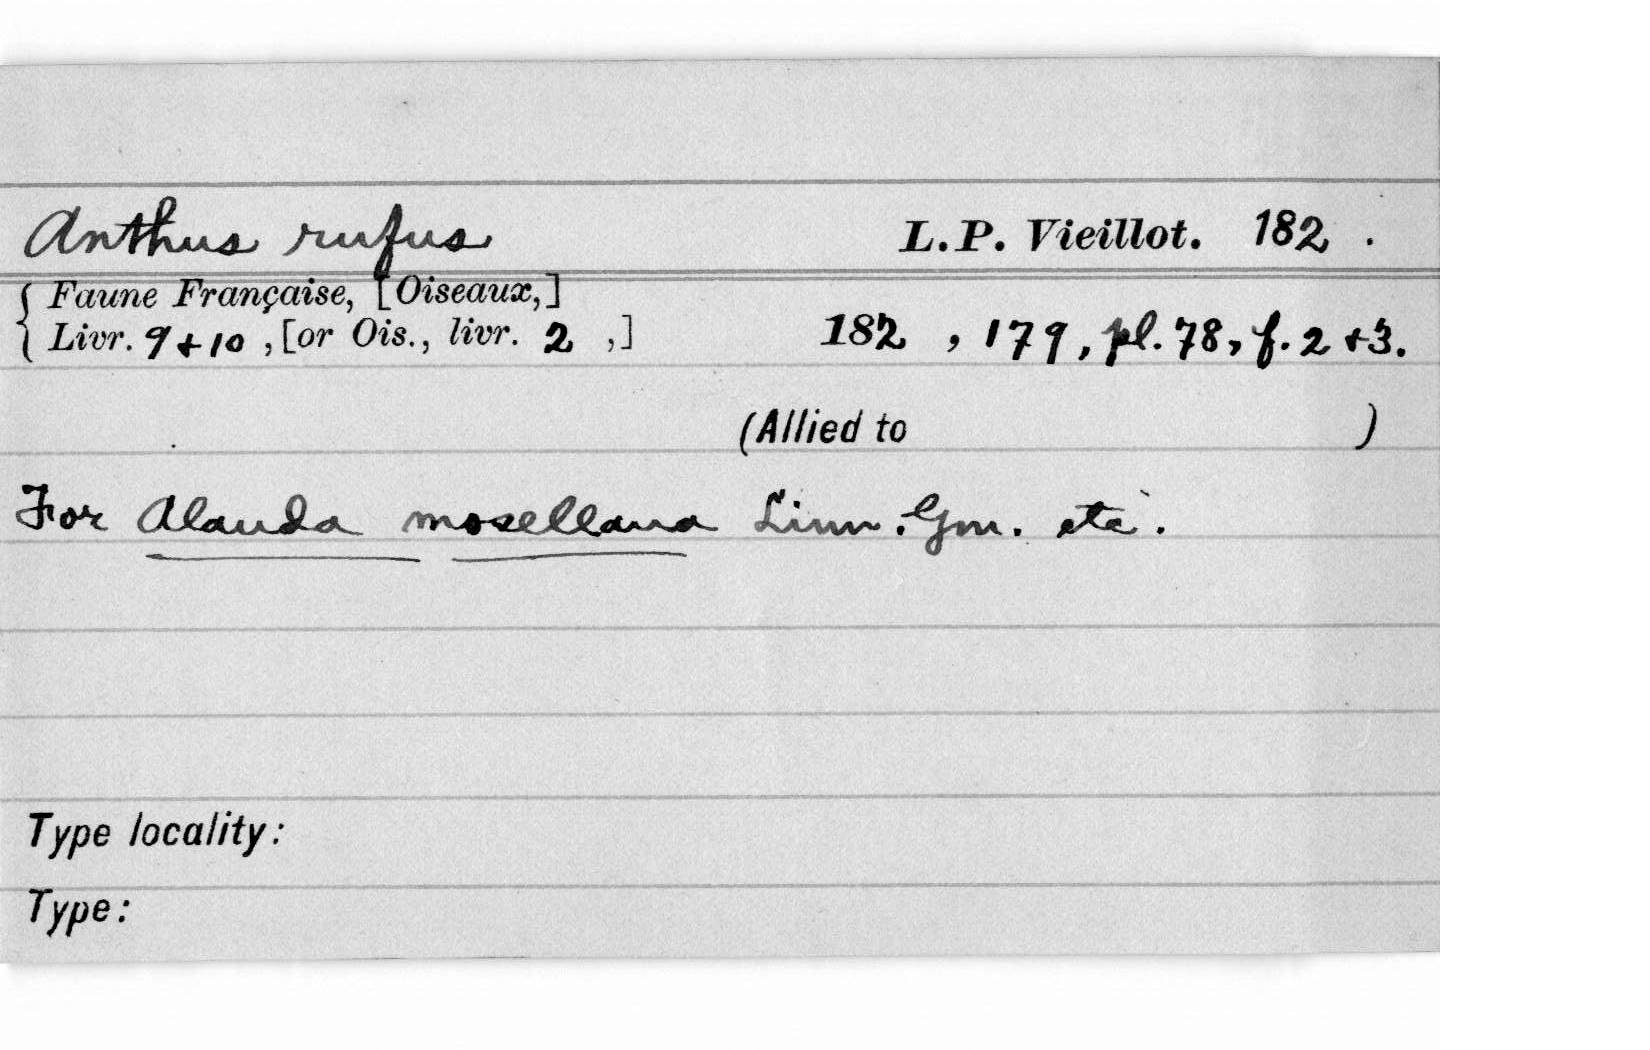 Anthus rufus L.P. Vieillot. 182 .
Faune Française, [Oiseaux,]
Livr. 9 + 10 , [or Ois., livr. 2 ,] 182 , 179, pl. 78, f. 2 + 3.
(Allied to )
For Alauda mosellana Linn. Gm. etc.
Type locality:
Type: